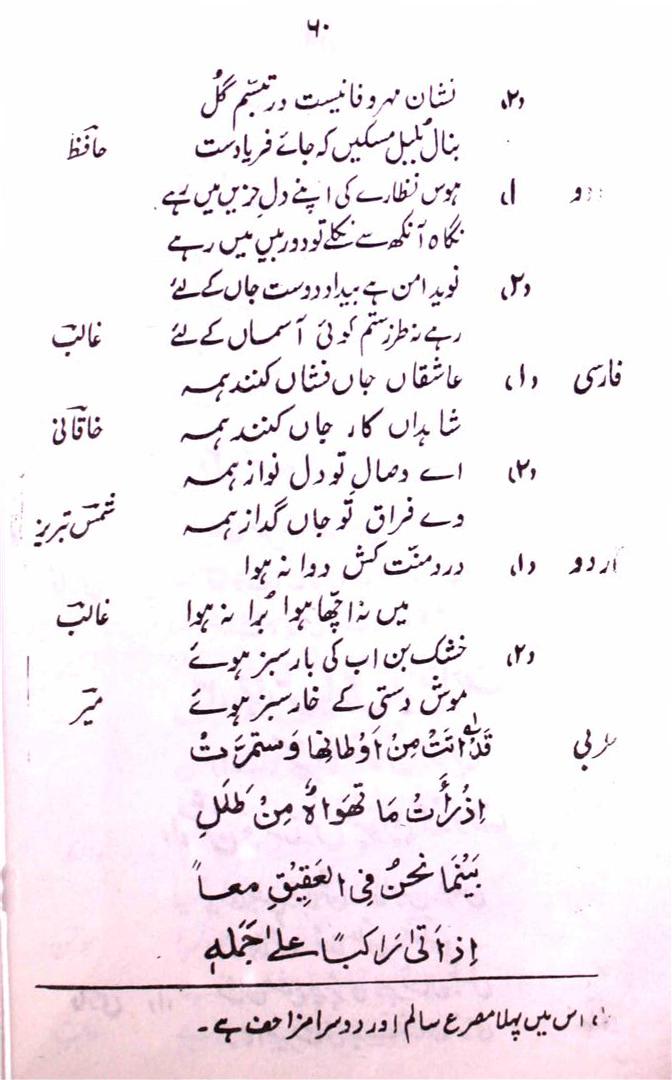 ۶۰
(۲) نشان مہر و فا نیست در تبسّم گُل
بنال بُلبلِ مسکیں کہ جائے فریادست حافظؔ
اردو (۱) ہوس نظارے کی اپنے دلِ حزیں میں رہے
نگاہ آنکھ سے نکلے تو دوربیں میں رہے
(۲) نوید امن ہے بیداد دوست جاں کے لئے
رہے نہ طرز ستم کوئی آسماں کے لئے غالبؔ
فارسی (۱) عاشقاں جاں فشاں کنند ہمہ
شاہداں کار جاں کنند ہمہ خاقانیؔ
(۲) اے وصالِ تو دل نواز ہمہ
وے فراق تو جاں گداز ہمہ شمسؔ تبریز
اُردو (۱) درد منّت کش دوا نہ ہوا
میں نہ اچّھا ہوا بُرا نہ ہوا غالبؔ
(۲) خشک بن اب کی بار سبز ہوئے
موش دستی کے خار سبز ہوئے میرؔ
عربی مِنْ اَوْطَانِهَا وَسْتَمَرَّتْ
اِذْ رَأَتْ مَا تَهَوَاهُ مِنْ طَلَلِ
بَيْنَمَا نَحْنُ فِي الْعَقِيْقِ مَعاً
اِذْ اَتٰی رَاكِباً عَلٰی جَمَلِهٖ
اس میں پہلا مصرع سالم اور دوسرا مزاحف ہے۔